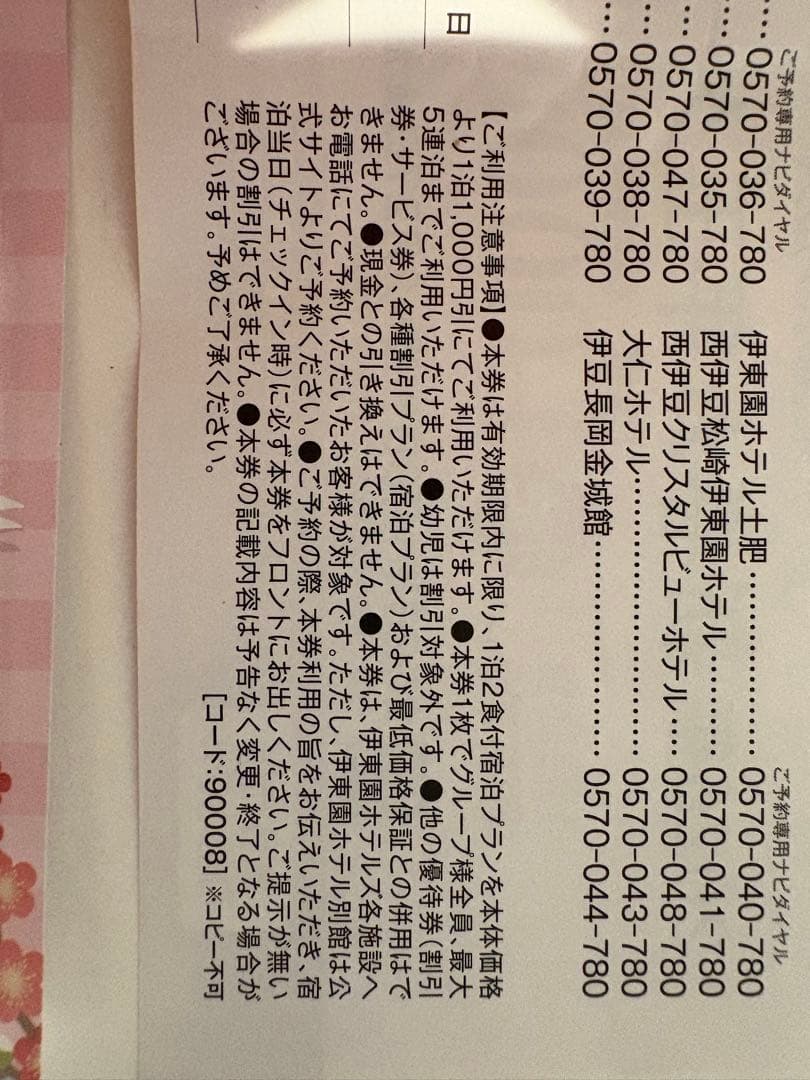 ご予約専用ナビダイヤル
… 0570-036-780
… 0570-035-780
… 0570-047-780
… 0570-038-780
… 0570-039-780
ご予約専用ナビダイヤル
伊東園ホテル土肥………………0570-040-780
西伊豆松崎伊東園ホテル………0570-041-780
西伊豆クリスタルビューホテル…0570-048-780
大仁ホテル………………………0570-043-780
伊豆長岡金城館…………………0570-044-780
日
【ご利用注意事項】●本券は有効期限内に限り、1泊2食付宿泊プランを本体価格
より1泊1,000円引にてご利用いただけます。●本券1枚でグループ様全員、最大
5連泊までご利用いただけます。●幼児は割引対象外です。●他の優待券(割引
券・サービス券)、各種割引プラン(宿泊プラン)および最低価格保証との併用はで
きません。●現金との引き換えはできません。●本券は、伊東園ホテルズ各施設へ
お電話にてご予約いただいたお客様が対象です。ただし、伊東園ホテル別館は公
式サイトよりご予約ください。●ご予約の際、本券利用の旨をお伝えいただき、宿
泊当日(チェックイン時)に必ず本券をフロントにお出しください。ご提示が無い
場合の割引はできません。●本券の記載内容は予告なく変更・終了となる場合が
ございます。予めご了承ください。
[コード:90008]※コピー不可